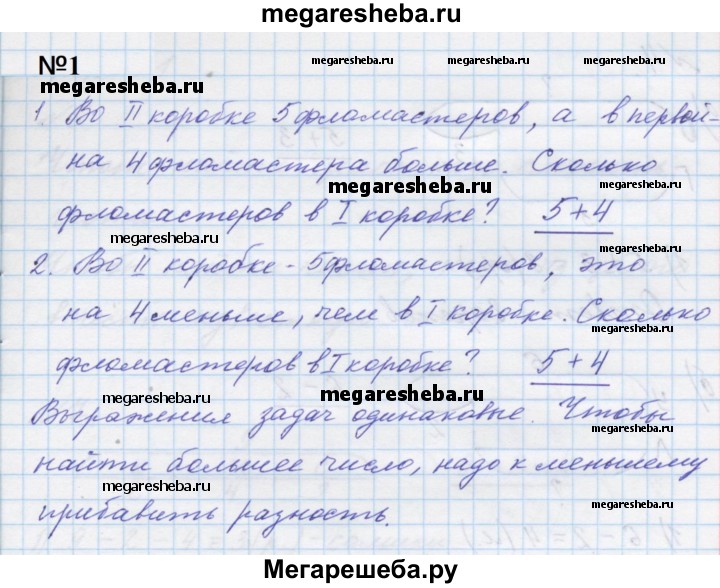 megaresheba.ru
№1 megaresheba.ru megaresheba.ru
megaresheba.ru
1. Во II коробке 5 фломастеров, а в первой-
на 4 фломастера больше. Сколько
megaresheba.ru megaresheba.ru
фломастеров в I коробке? 5+4
megaresheba.ru
2. Во II коробке - 5 фломастеров, это
на 4 меньше, чем в I коробке. Сколько
фломастеров в I коробке? 5+4
megaresheba.ru megaresheba.ru
Выражения задач одинаковые. Чтобы
найти большее число, надо к меньшему
megaresheba.ru
прибавить разность.
megaresheba.ru
Мегарешеба.ру